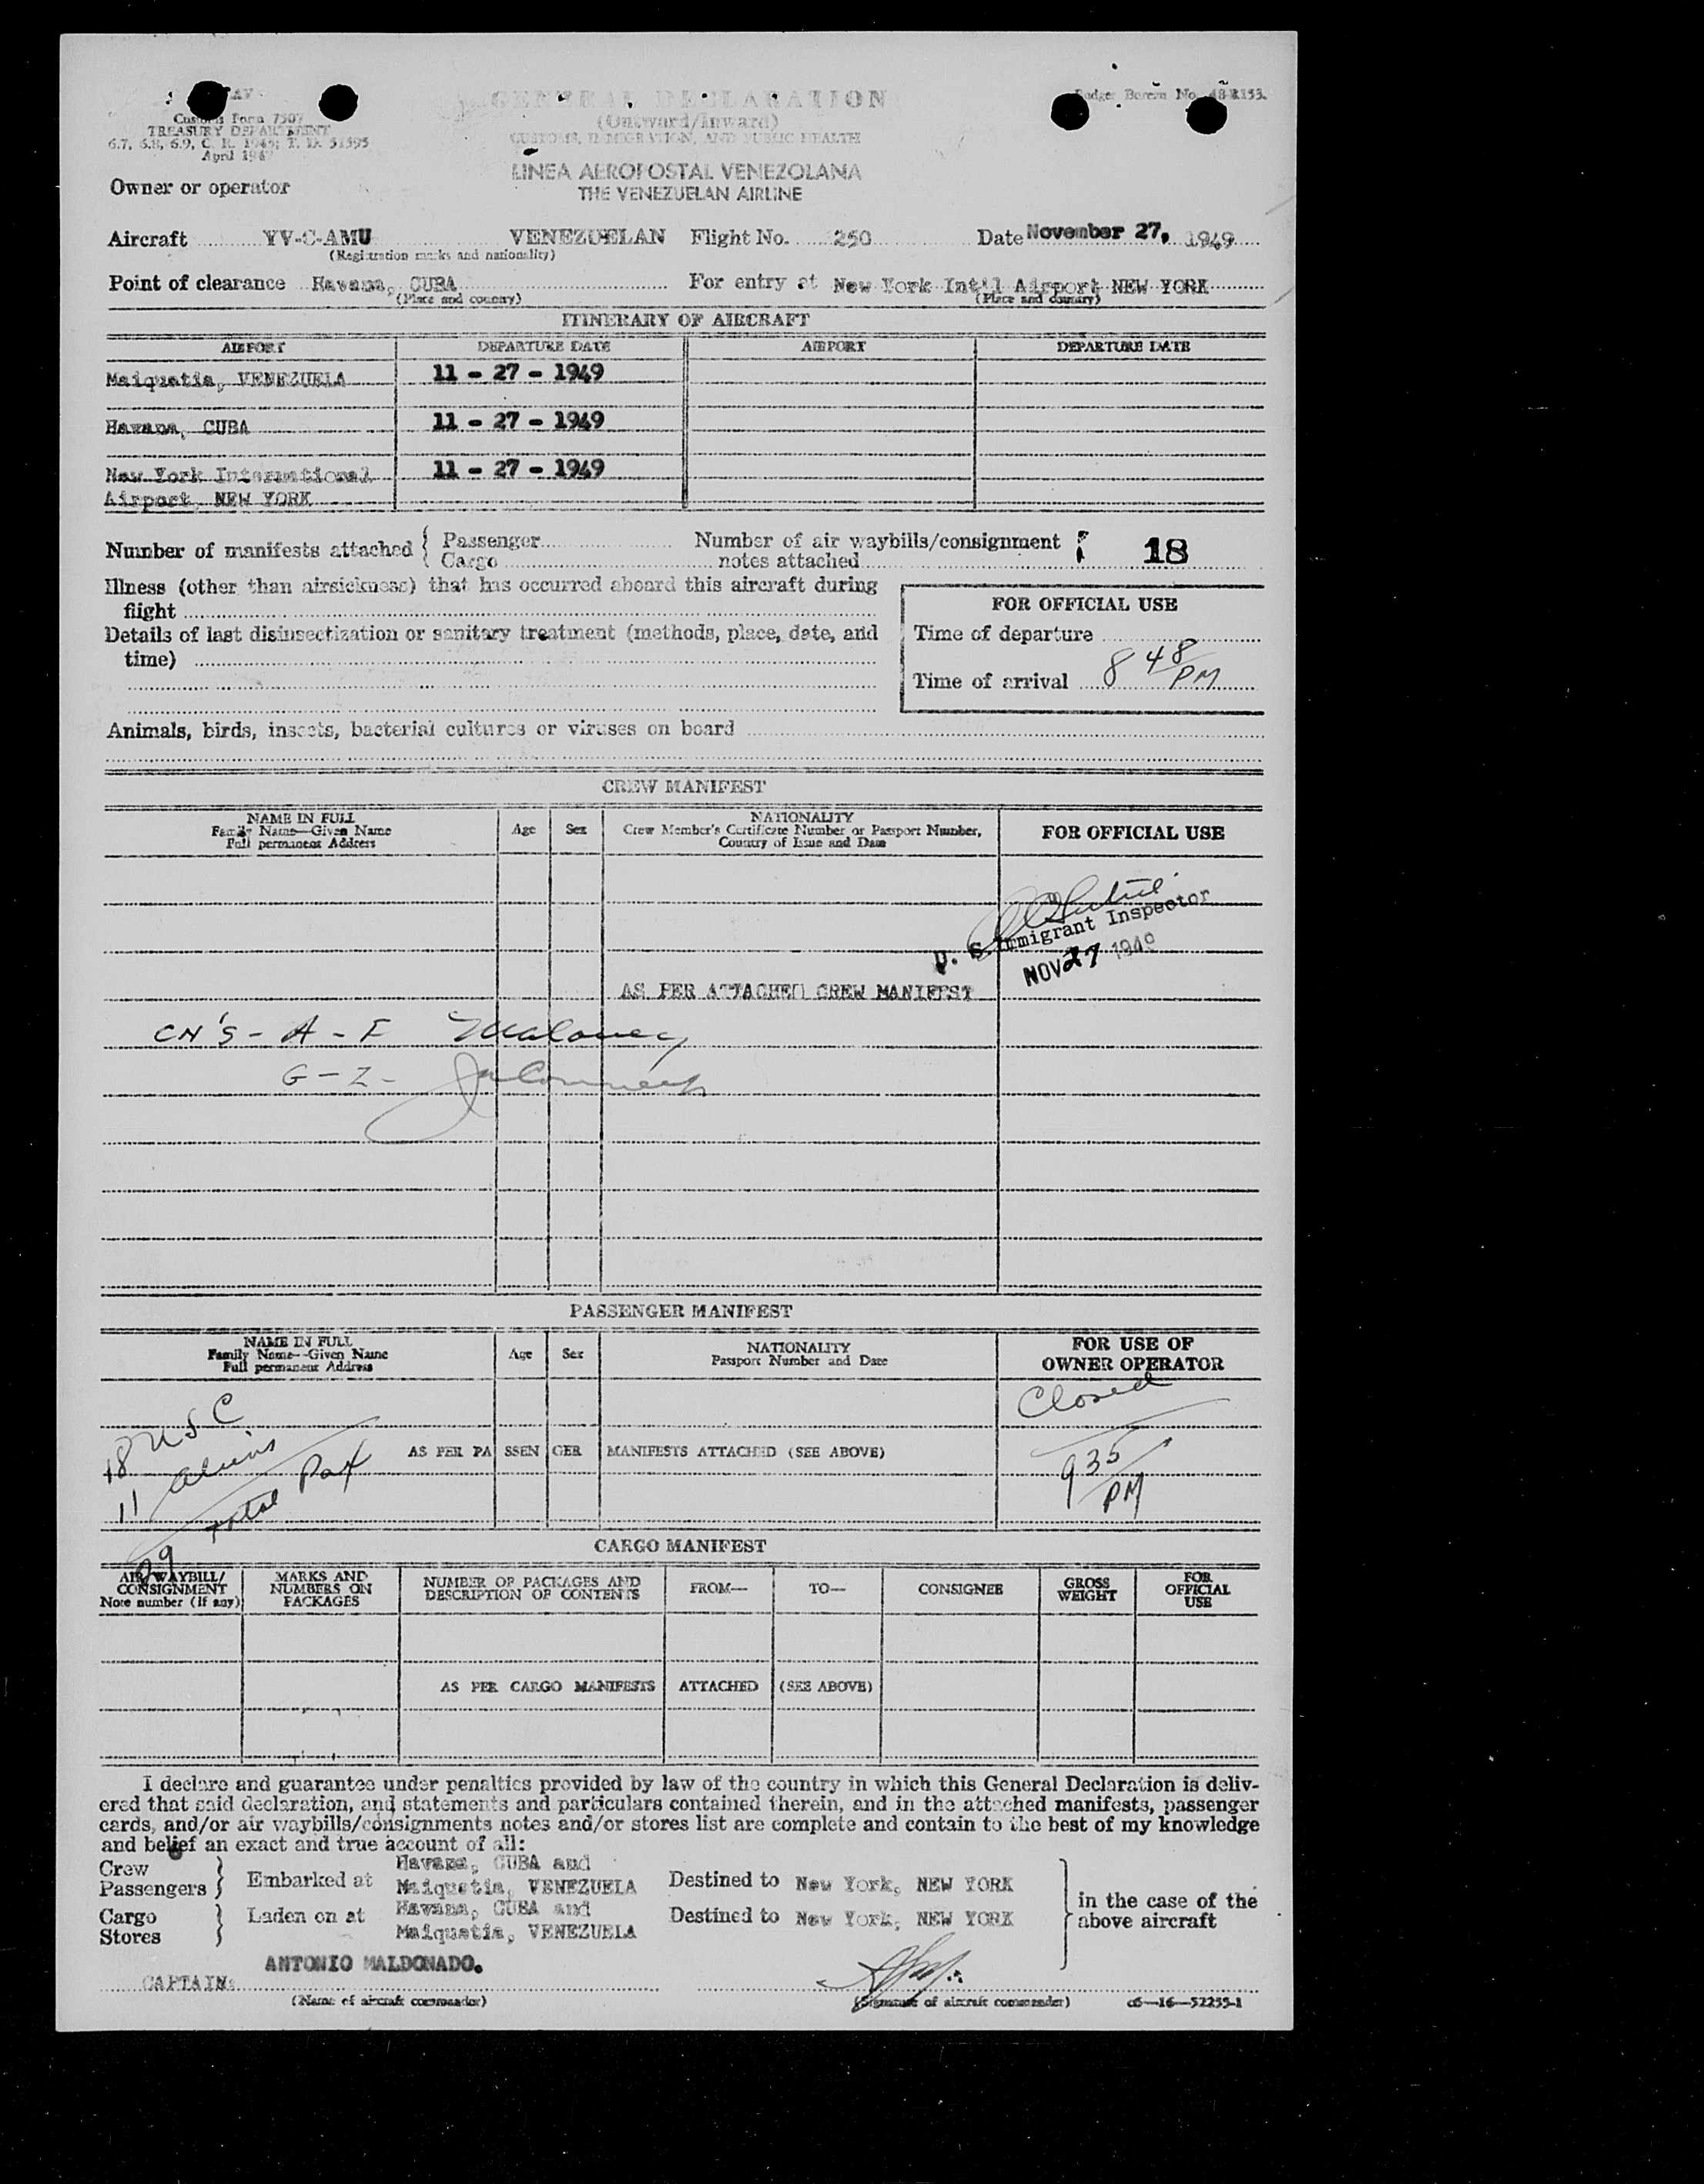 Customs Form 7507
TREASURY DEPARTMENT
6.7, 6.8, 6.9, C. R. 1949; T. D. 51595
April 194
GENERAL DECLARATION
(Outward/Inward)
CUSTOMS, IMMIGRATION, AND PUBLIC HEALTH
Budget Bureau No.
LINEA AEROPOSTAL VENEZOLANA
THE VENEZUELAN AIRLINE
Owner or operator
Aircraft YV-C-AMU VENEZUELAN Flight No. 250 Date November 27, 1949
(Registration marks and nationality)
Point of clearance Havana, CUBA For entry at New York Int'l Airport NEW YORK
(Place and country) (Place and country)
ITINERARY OF AIRCRAFT
AIRPORT DEPARTURE DATE AIRPORT DEPARTURE DATE
Maiquetia, VENEZUELA 11 - 27 - 1949
Havana, CUBA 11 - 27 - 1949
New York International 11 - 27 - 1949
Airport, NEW YORK
Number of manifests attached { Passenger Number of air waybills/consignment 18
Cargo notes attached
Illness (other than airsickness) that has occurred aboard this aircraft during
flight
Details of last disinsectization or sanitary treatment (methods, place, date, and
time)
FOR OFFICIAL USE
Time of departure
Time of arrival 8 48 PM
Animals, birds, insects, bacterial cultures or viruses on board
CREW MANIFEST
NAME IN FULL
Family Name—Given Name
Full permanent Address
Age Sex
NATIONALITY
Crew Member's Certificate Number or Passport Number,
Country of Issue and Date
FOR OFFICIAL USE
U. S. Immigrant Inspector
NOV 27 1949
AS PER ATTACHED CREW MANIFEST
CN'S - A - F Maloney
G - Z -
PASSENGER MANIFEST
NAME IN FULL
Family Name—Given Name
Full permanent Address
Age Sex
NATIONALITY
Passport Number and Date
FOR USE OF
OWNER OPERATOR
Closed
9 35 PM
18 USC
11 aliens
29 total Pax
AS PER PASSENGER MANIFESTS ATTACHED (SEE ABOVE)
CARGO MANIFEST
AIR WAYBILL/
CONSIGNMENT
Note number (if any)
MARKS AND
NUMBERS ON
PACKAGES
NUMBER OF PACKAGES AND
DESCRIPTION OF CONTENTS
FROM— TO— CONSIGNEE
GROSS
WEIGHT
FOR
OFFICIAL
USE
AS PER CARGO MANIFESTS ATTACHED (SEE ABOVE)
I declare and guarantee under penalties provided by law of the country in which this General Declaration is deliv-
ered that said declaration, and statements and particulars contained therein, and in the attached manifests, passenger
cards, and/or air waybills/consignments notes and/or stores list are complete and contain to the best of my knowledge
and belief an exact and true account of all:
Crew
Passengers } Embarked at Havana, CUBA and
Maiquetia, VENEZUELA Destined to New York, NEW YORK
Cargo
Stores } Laden on at Havana, CUBA and
Maiquetia, VENEZUELA Destined to New York, NEW YORK
} in the case of the
above aircraft
CAPTAIN: ANTONIO MALDONADO.
(Name of aircraft commander) (Signature of aircraft commander) c6—16—52255-1